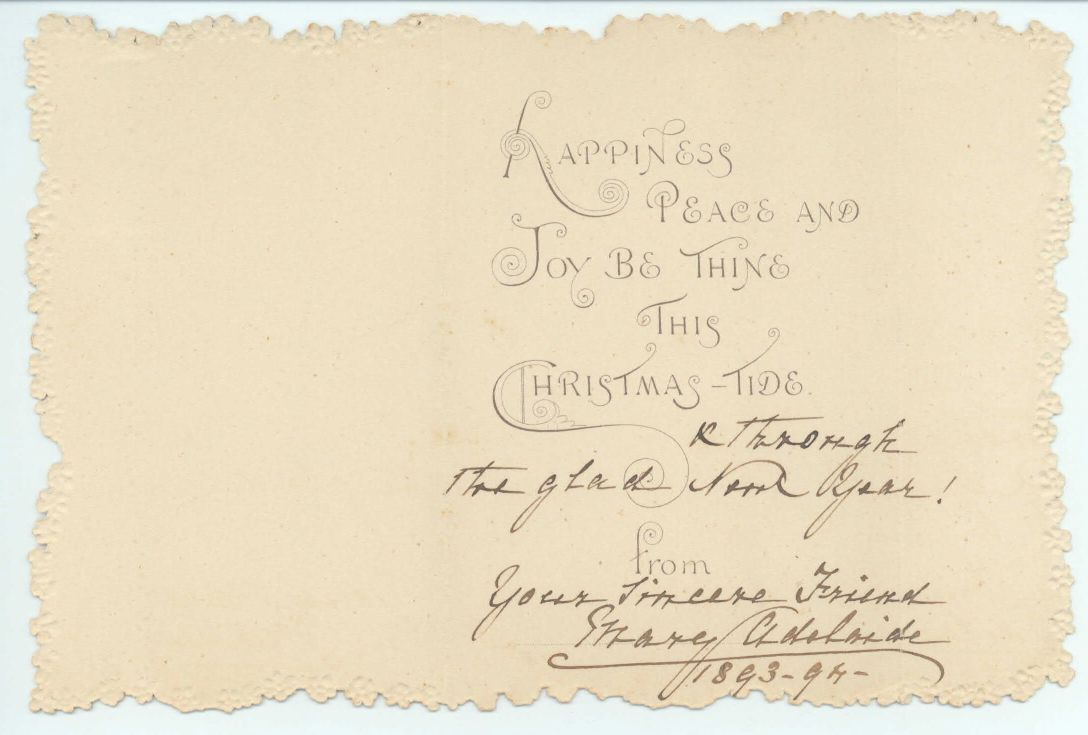 HAPPINESS
PEACE AND
JOY BE THINE
THIS
CHRISTMAS-TIDE.
& through
the glad New Year!
from
Your sincere Friend
Mary Adelaide
1893-94-